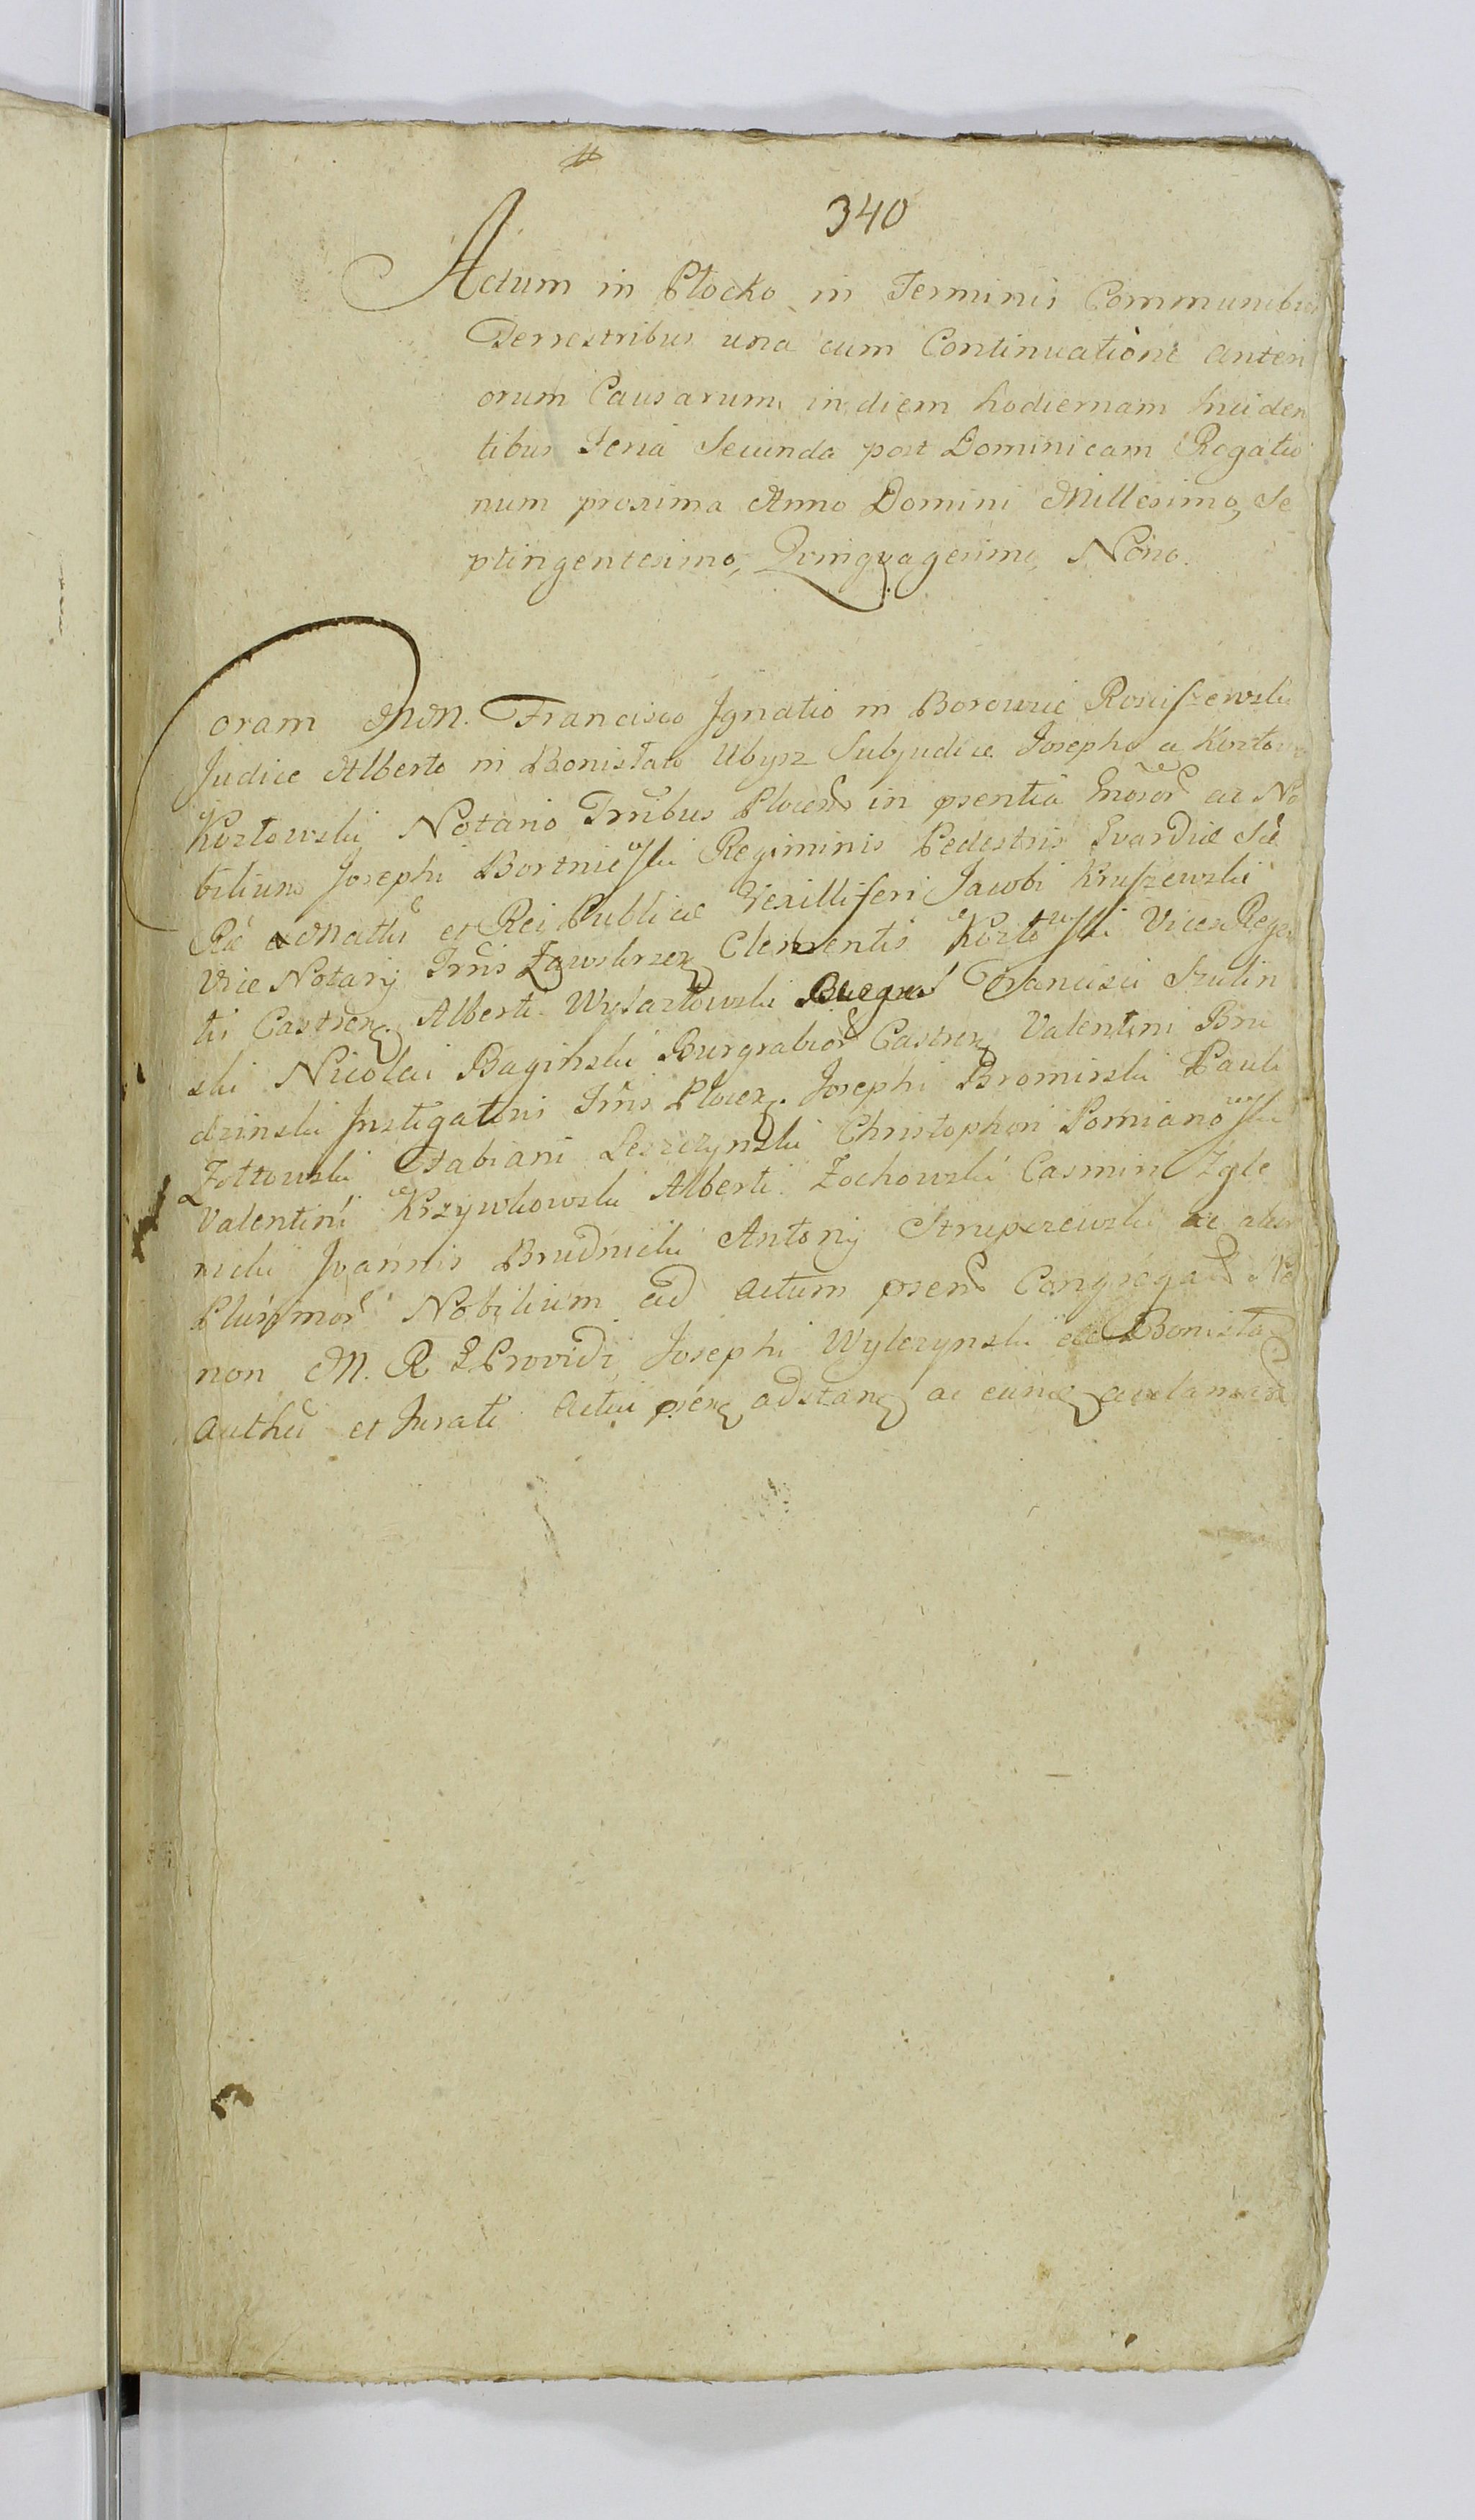 340
Actum in Płocko in Terminis Communibus
Terrestribus una cum Continuatione anteri
orum Causarum in diem hodiernam Inciden
tibus Feria Secunda post Dominicam Rogatio
num proxima Anno Domini Millesimo, Se
ptingentesimo, Quinquagesimo, Nono.
Coram MM. Francisco Ignatio in Borowie Rosciszewski
Judice Alberto in Bonisław Ubysz Subjudice Josepho a Kozłowo
Kozłowski Notario Trribus Plocen in psentia Gnosor ac No
bilium Josephi Bortnicski Regiminis Pedestris Gvardiæ Sae
Rae Mattis et Rei Publicæ Vexilliferi Jacobi Kruszewski
Vice Notarij Trris Zawskrzen Clementis Kozłowski Vices Rege
tis Castren. Alberti Francisci Szulin
ski Nicolai Baginski Burgrabior Castren Valentini Bru
dzinski Instigatoris Trris Plocen. Josephi Bromirski Pauli
Zołtowski Fabiani Leszczynski Christophori Pomianowski
Valentini Krzywkowski Alberti Zochowski Casimiri Zgle
nicki Joannis Brudnicki Antonij Strupczewski ac alior
Plurimor Nobilium ad actum psen Congregat Nec
non M. R. Providi Josephi Wylczynski de Bonisław
Authen et Jurati Actui psen adstan ac eunđ acclaman